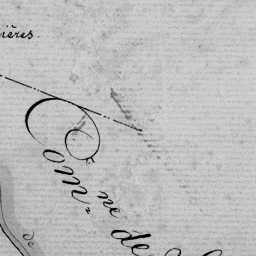 ières
Com.ne de
de